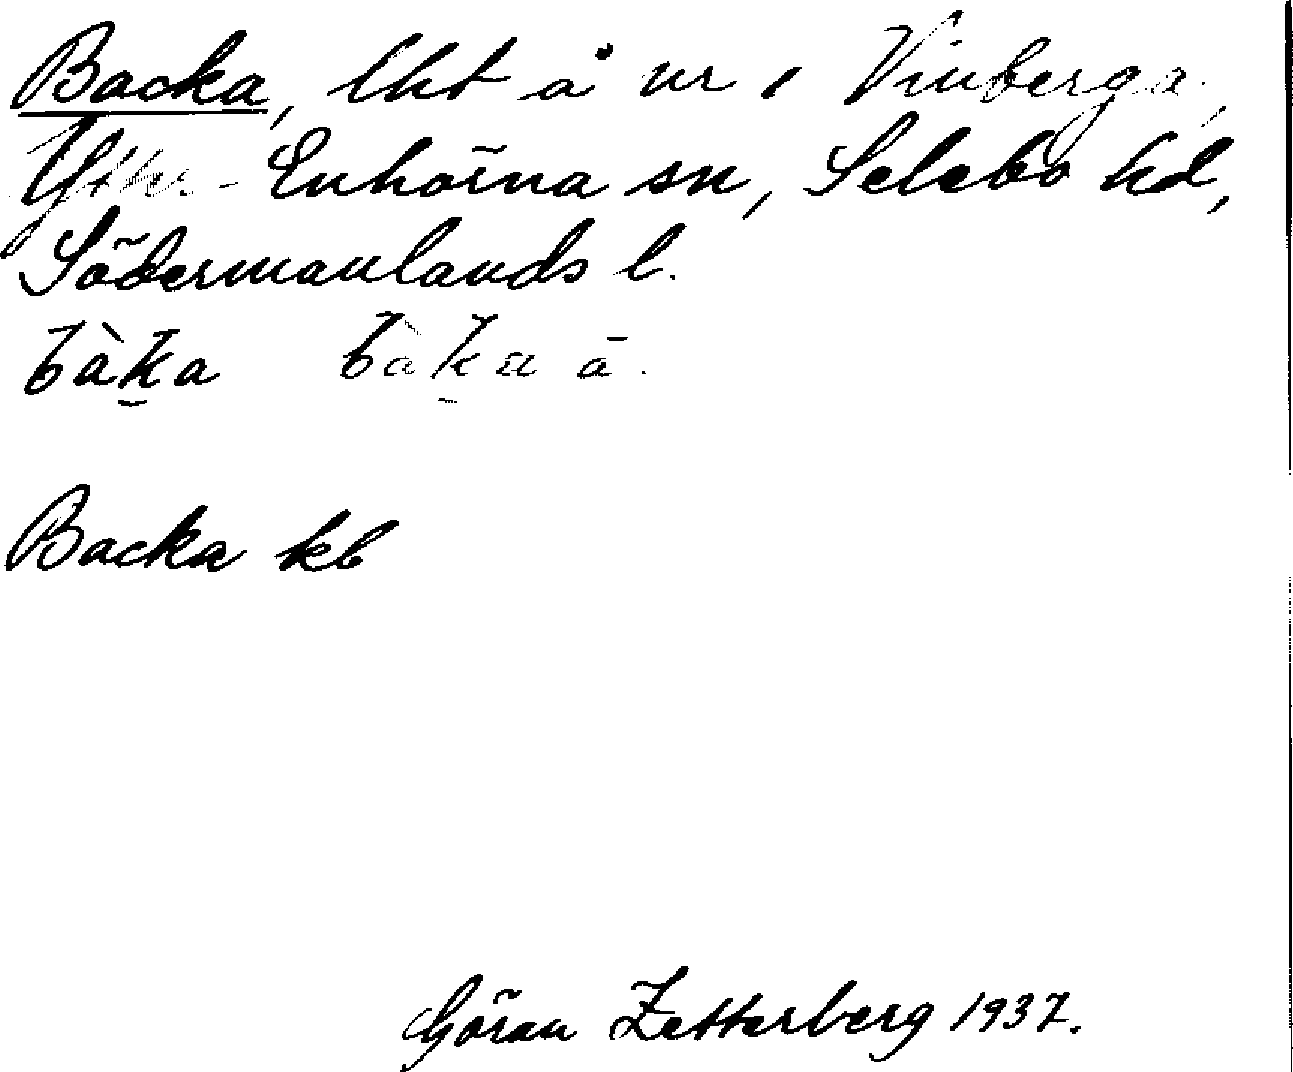 Backa, lht å nr 1 Vinberga,
Ytter-Enhörna sn, Selebo hd,
Södermanlands l.
bàka bàka ā.
Backa kb
Göran Zetterberg 1937.